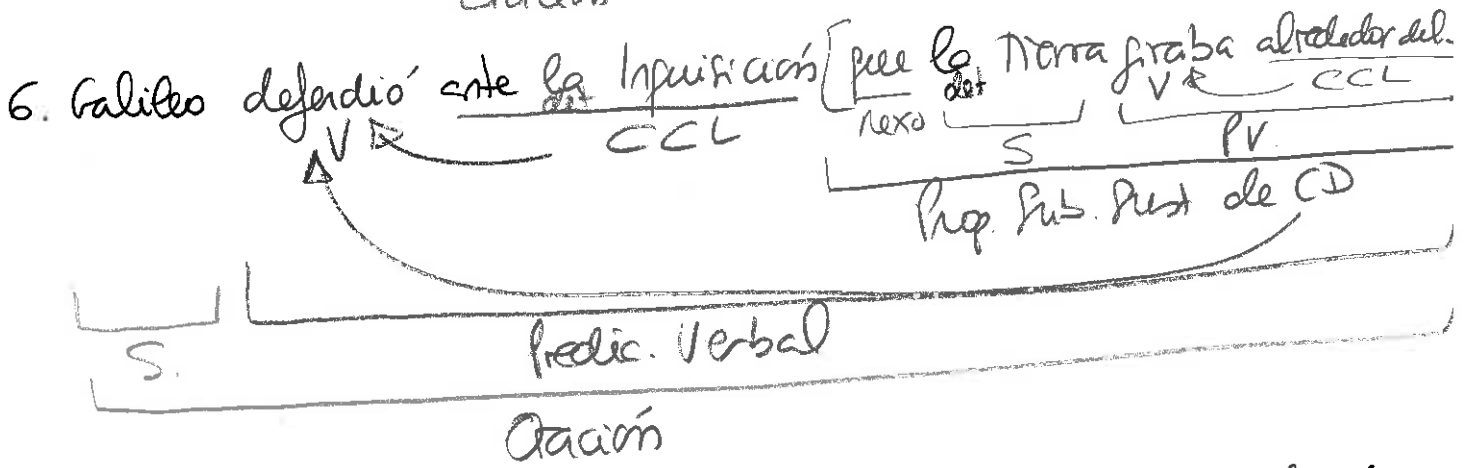 6. Galileo defendió ante la Inquisición [que la Tierra giraba alrededor del.
det det V CCL
V CCL nexo S PV
Prop. Sub. Sust de CD
S. Predic. Verbal
Oración